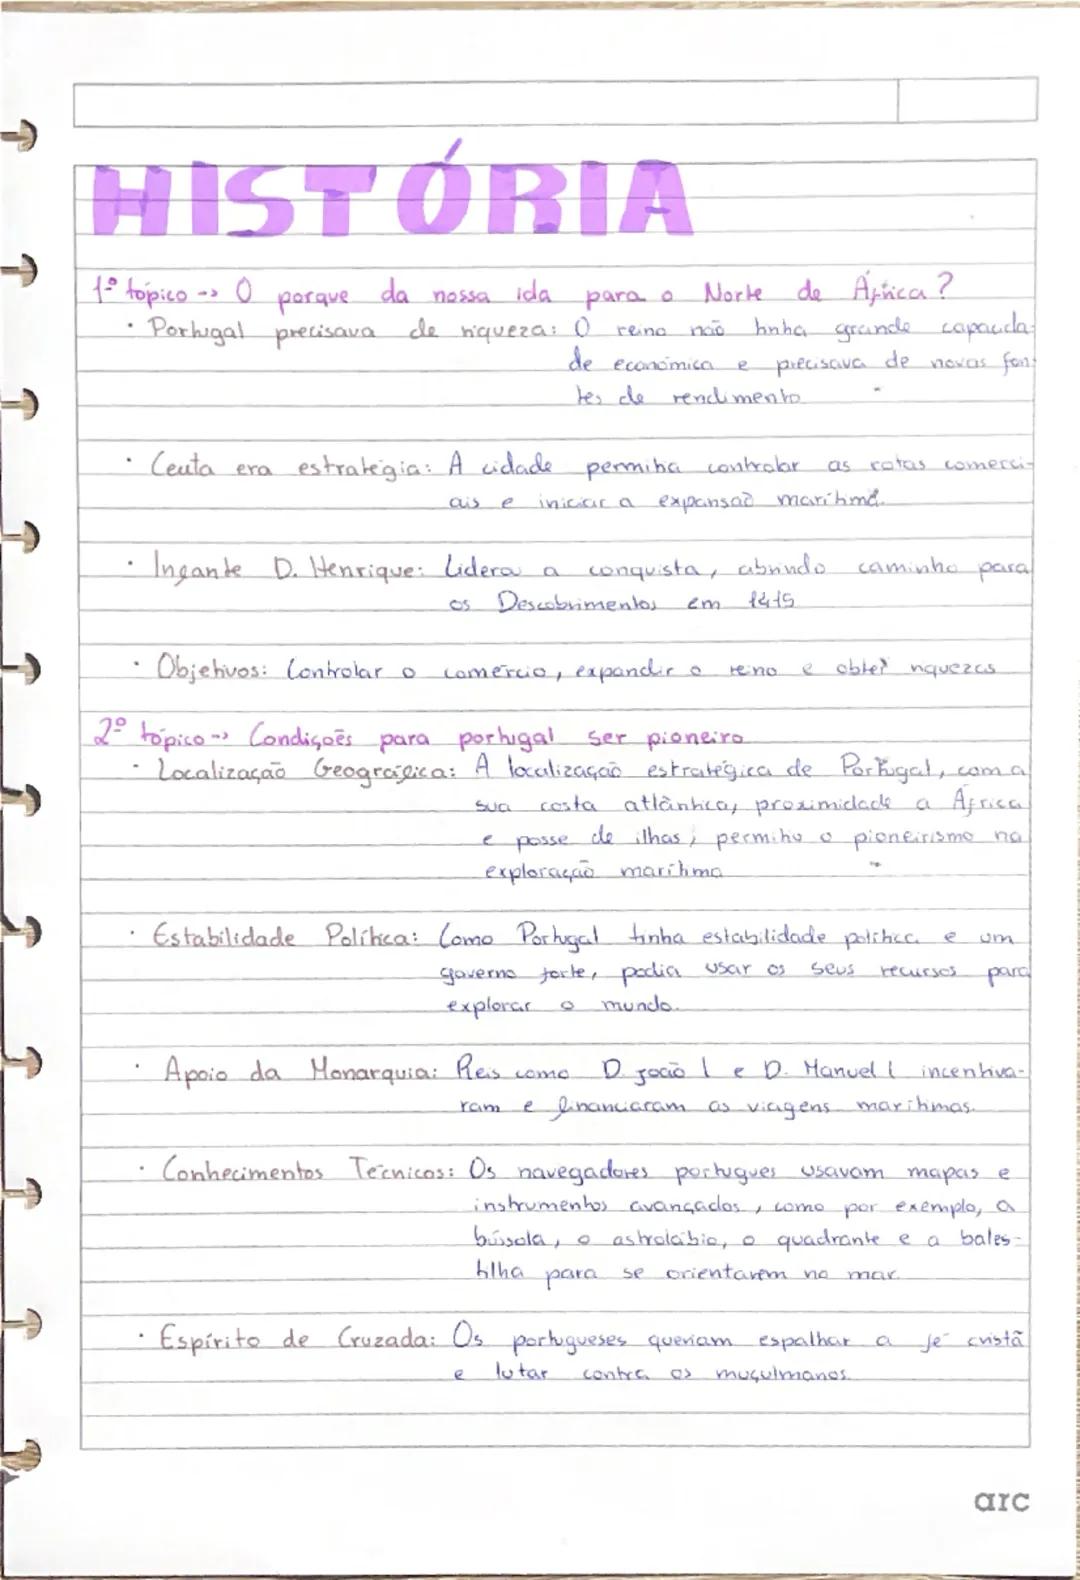 HISTÓRIA
1º tópico -> O porque da nossa ida para o Norte de África?
· Portugal precisava de riqueza: O reino não tinha grande capacida-
de económica e precisava de novas fon-
tes de rendimento
· Ceuta era estratégia: A cidade permitia controlar as rotas comerci-
ais e iniciar a expansaõ marítima.
· Infante D. Henrique: Liderou a conquista, abrindo caminho para
os Descobrimentos em 1415
· Objetivos: Controlar o comércio, expandir o reino e obter riquezas
2º tópico -> Condiçoẽs para portugal ser pioneiro
· Localização Geográfica: A localização estratégica de Portugal, com a
sua costa atlântica, proximidade a África
e posse de ilhas, permitiu o pioneirismo na
exploração marítima
· Estabilidade Política: Como Portugal tinha estabilidade política e um
governo forte, podia usar os seus recursos para
explorar o mundo.
· Apoio da Monarquia: Reis como D. João I e D. Manuel I incentiva-
ram e financiaram as viagens marítimas.
· Conhecimentos Técnicos: Os navegadores portugues usavam mapas e
instrumentos avançados, como por exemplo, a
bússola, o astrolábio, o quadrante e a bales-
tilha para se orientarem no mar.
· Espírito de Cruzada: Os portugueses queriam espalhar a fé cristã
e lutar contra os muçulmanos.
arc